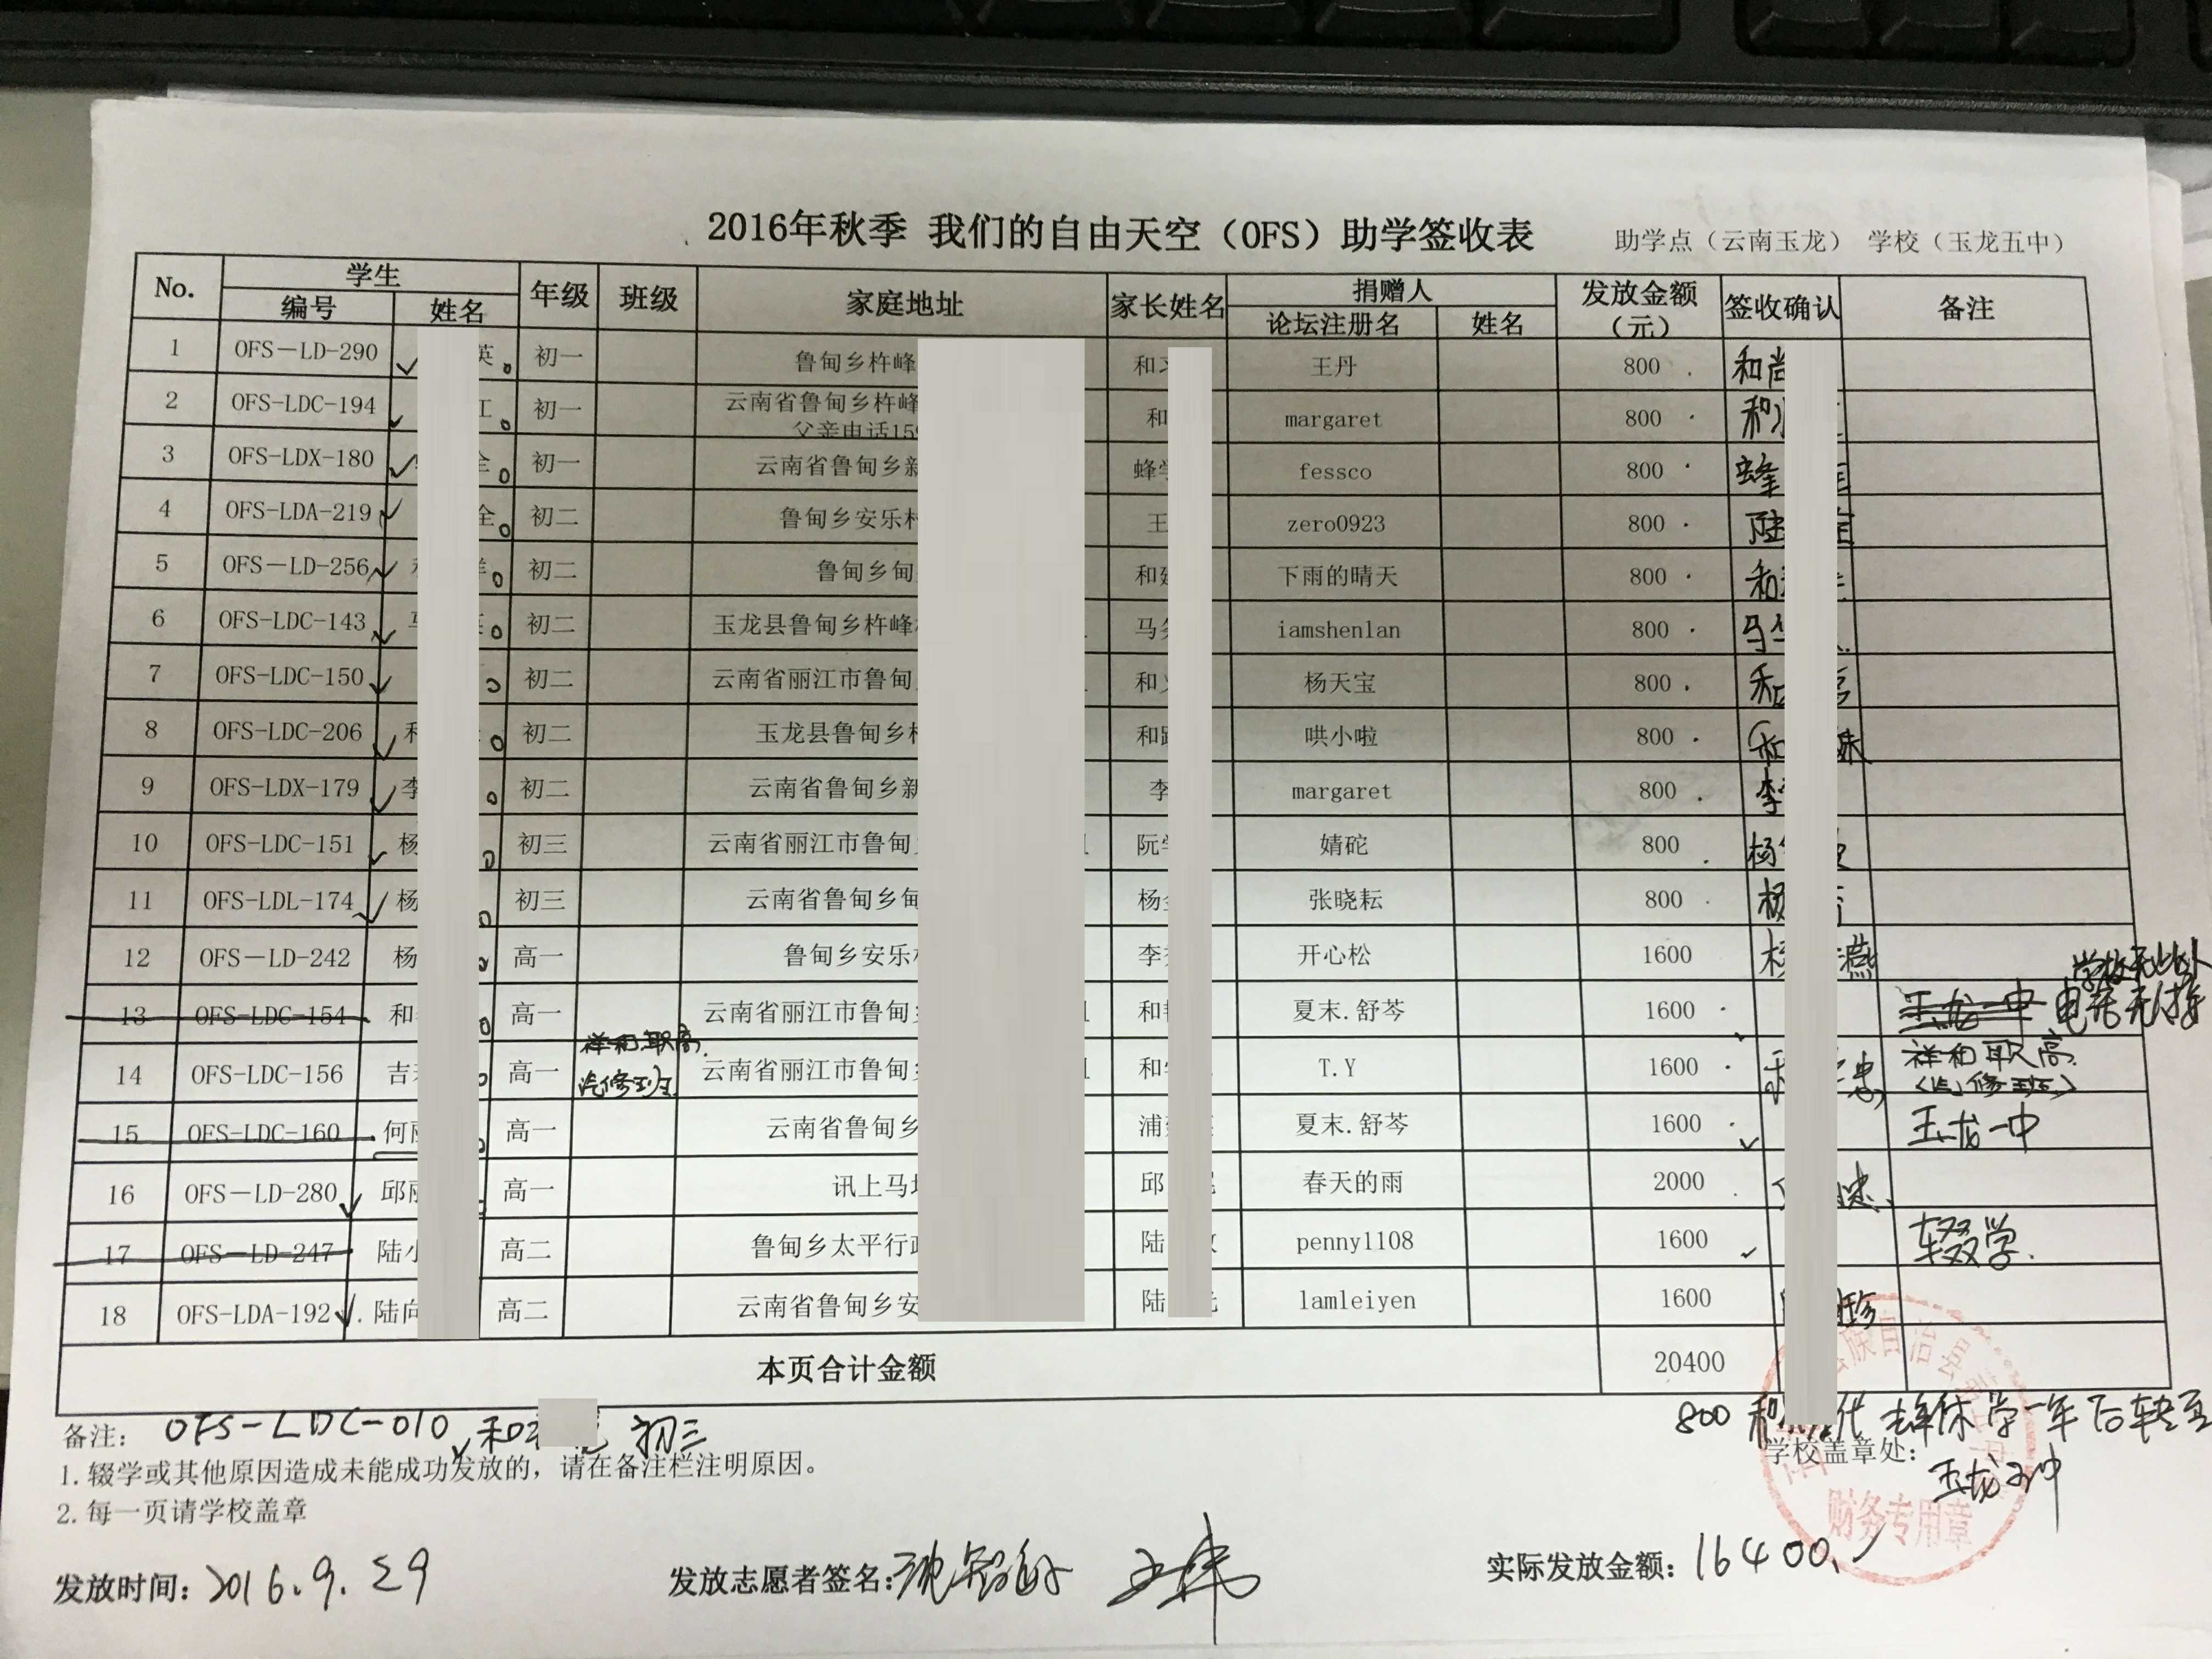 2016年秋季 我们的自由天空（OFS）助学签收表 助学点（云南玉龙） 学校（玉龙五中）
No. 学生 年级 班级 家庭地址 家长姓名 捐赠人 发放金额（元） 签收确认 备注
编号 姓名 论坛注册名 姓名
1 OFS－LD-290 英 初一 鲁甸乡杵峰 和 王丹 800 和尚
2 OFS-LDC-194 江 初一 云南省鲁甸乡杵峰 父亲电话159 和 margaret 800 和
3 OFS-LDX-180 全 初一 云南省鲁甸乡新 蜂 fessco 800 蜂
4 OFS-LDA-219 全 初二 鲁甸乡安乐村 王 zero0923 800 陆
5 OFS－LD-256 初二 鲁甸乡甸 和 下雨的晴天 800 和
6 OFS-LDC-143 初二 玉龙县鲁甸乡杵峰 马 iamshenlan 800 马
7 OFS-LDC-150 初二 云南省丽江市鲁甸 和 杨天宝 800 和
8 OFS-LDC-206 初二 玉龙县鲁甸乡 和 哄小啦 800 和 妹
9 OFS-LDX-179 李 初二 云南省鲁甸乡新 李 margaret 800 李
10 OFS-LDC-151 杨 初三 云南省丽江市鲁甸 阮 婧砣 800 杨
11 OFS-LDL-174 杨 初三 云南省鲁甸乡甸 杨 张晓耘 800 杨
12 OFS－LD-242 杨 高一 鲁甸乡安乐 李 开心松 1600 杨 燕
13 OFS-LDC-154 和 高一 云南省丽江市鲁甸 和 夏末.舒芩 1600 玉龙一中 学校无此人 电话无接
14 OFS-LDC-156 吉 高一 祥和职高 汽修班 云南省丽江市鲁甸 和 T.Y 1600 忠 祥和职高（汽修班）
15 OFS-LDC-160 何 高一 云南省鲁甸乡 浦 夏末.舒芩 1600 玉龙一中
16 OFS－LD-280 邱 高一 讯上马 邱 春天的雨 2000
17 OFS－LD-247 陆小 高二 鲁甸乡太平行政 陆 penny1108 1600 辍学.
18 OFS-LDA-192 陆向 高二 云南省鲁甸乡安 陆 lamleiyen 1600 珍
本页合计金额 20400
备注： OFS-LDC-010 和 初三 800 和 代 休学一年后转至
玉龙 中
1.辍学或其他原因造成未能成功发放的，请在备注栏注明原因。 学校盖章处：
2.每一页请学校盖章 财务专用章
发放时间：2016.9.29 发放志愿者签名： 实际发放金额：16400.